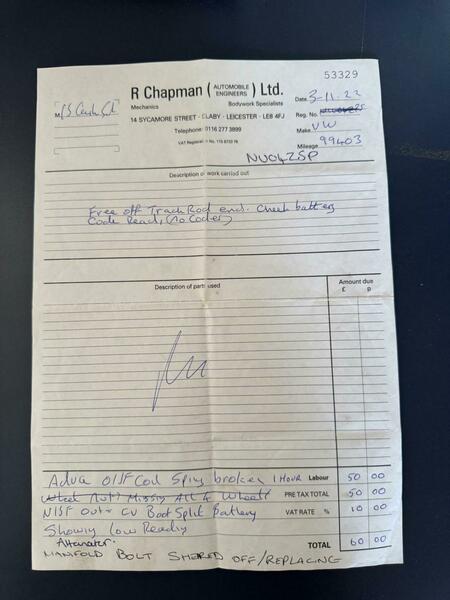 53329
R Chapman ( AUTOMOBILE ENGINEERS ) Ltd.
Mechanics Bodywork Specialists
14 SYCAMORE STREET - BLABY - LEICESTER - LE8 4FJ
Telephone: 0116 277 3899
VAT Registration No. 115 8703 76
Date 3-11-22
Reg. No.
Make VW
Mileage 99403
M
NU04ZSP
Description of work carried out
Free off Track Rod end. Check battery
Code Read, (No Codes)
Description of parts used
Amount due
£ p
Advise O/S/F Coil Spring broken 1 HOUR Labour 50 00
Wheel Nuts Missing All 4 Wheels PRE TAX TOTAL 50 00
N/S/F Outer CV Boot Split Battery VAT RATE % 10 00
Showing Low Reading
Alternator. TOTAL 60 00
MANIFOLD BOLT SHERED OFF/REPLACING